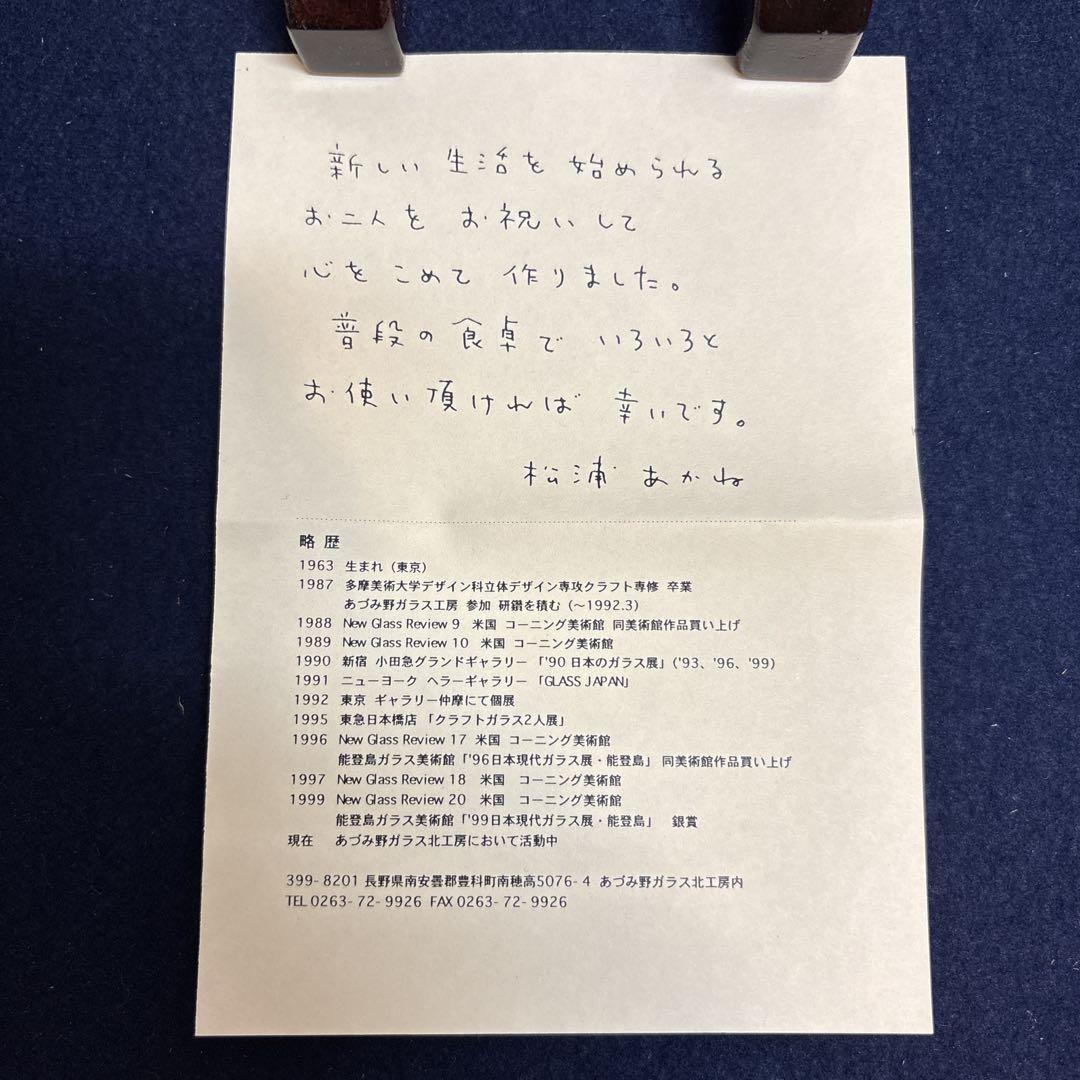 新しい 生活を 始められる
お二人を お祝いして
心を こめて 作りました。
普段の 食卓で いろいろと
お使い頂ければ 幸いです。
松浦 あかね
略 歴
1963 生まれ（東京）
1987 多摩美術大学デザイン科立体デザイン専攻クラフト専修 卒業
あづみ野ガラス工房 参加 研鑽を積む（～1992.3）
1988 New Glass Review 9 米国 コーニング美術館 同美術館作品買い上げ
1989 New Glass Review 10 米国 コーニング美術館
1990 新宿 小田急グランドギャラリー 「'90 日本のガラス展」('93、'96、'99）
1991 ニューヨーク ヘラーギャラリー 「GLASS JAPAN」
1992 東京 ギャラリー仲摩にて個展
1995 東急日本橋店 「クラフトガラス2人展」
1996 New Glass Review 17 米国 コーニング美術館
能登島ガラス美術館「'96日本現代ガラス展・能登島」 同美術館作品買い上げ
1997 New Glass Review 18 米国 コーニング美術館
1999 New Glass Review 20 米国 コーニング美術館
能登島ガラス美術館「'99日本現代ガラス展・能登島」 銀賞
現在 あづみ野ガラス北工房において活動中
399-8201 長野県南安曇郡豊科町南穂高5076-4 あづみ野ガラス北工房内
TEL 0263-72-9926 FAX 0263-72-9926